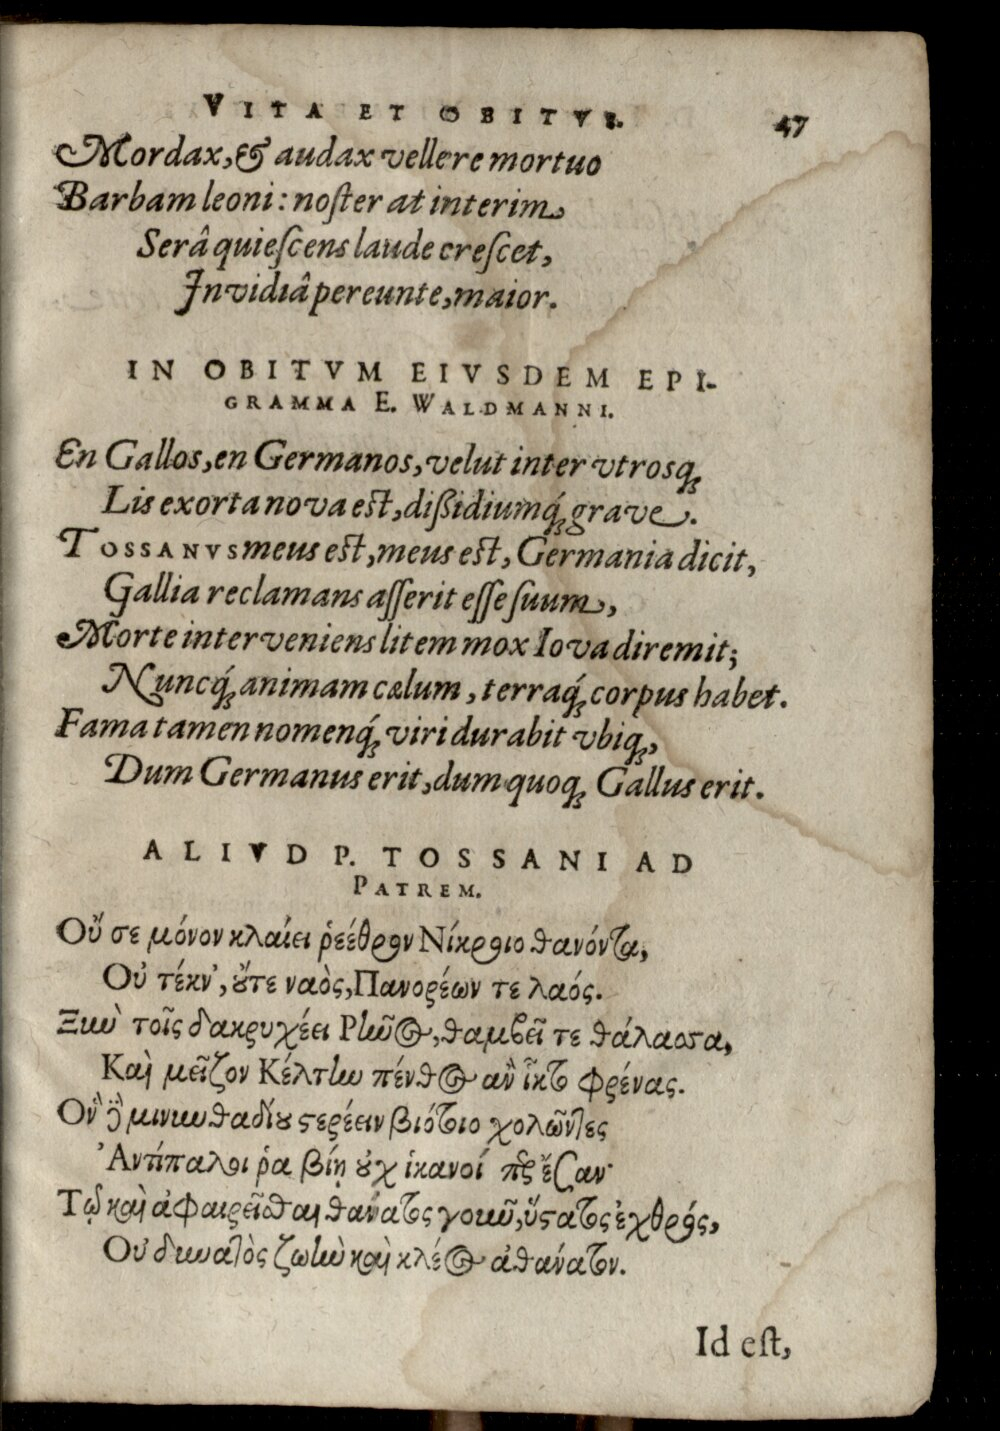 VITA ET OBITVS. 47
Mordax, & audax vellere mortuo
Barbam leoni: noſter at interim,
Serâ quieſcens laude creſcet,
Invidiâ pereunte, maior.
IN OBITVM EIVSDEM EPI-
GRAMMA E. WALDMANNI.
En Gallos, en Germanos, velut inter vtrosq́;
Lis exorta nova eſt, diſsidiumq́; grave.
TOSSANVS meus eſt, meus eſt, Germania dicit,
Gallia reclamans aſſerit eſſe ſuum,
Morte interveniens litem mox Iova diremit;
Nuncq́; animam cælum, terraq́; corpus habet.
Fama tamen nomenq́; viri durabit vbiq;,
Dum Germanus erit, dum quoq; Gallus erit.
ALIVD P. TOSSANI AD
PATREM.
Οὔ σε μόνον κλαίει ῥεέθρην Νίκρριο θανόντα,
Οὐ τέκν', ȣ̓́τε ναὸς, Πανορέων τε λαός.
Ξιωὺ τοῖς δακρυχέει Ρλῶ@, θαμβεῖ τε θάλασσα,
Καὶ μεῖζον Κέλτίω πένθ@ ἂν ἷκτο φρένας.
Ὃν μινιωθαδίȣ στερέειν βιότοιο χολῶντες
Ἀντίπαλοι ῥα βίῃ ȣ̓χ ἱκανοί περ ἔζαν·
Τῷ καὶ ἀφαιρεῖσθαι θανάτοις ὕστατος ἐχθρός,
Οὐ δυνατὸς ζωὴν καὶ κλέ@ ἀθάνατον.
Id eſt,